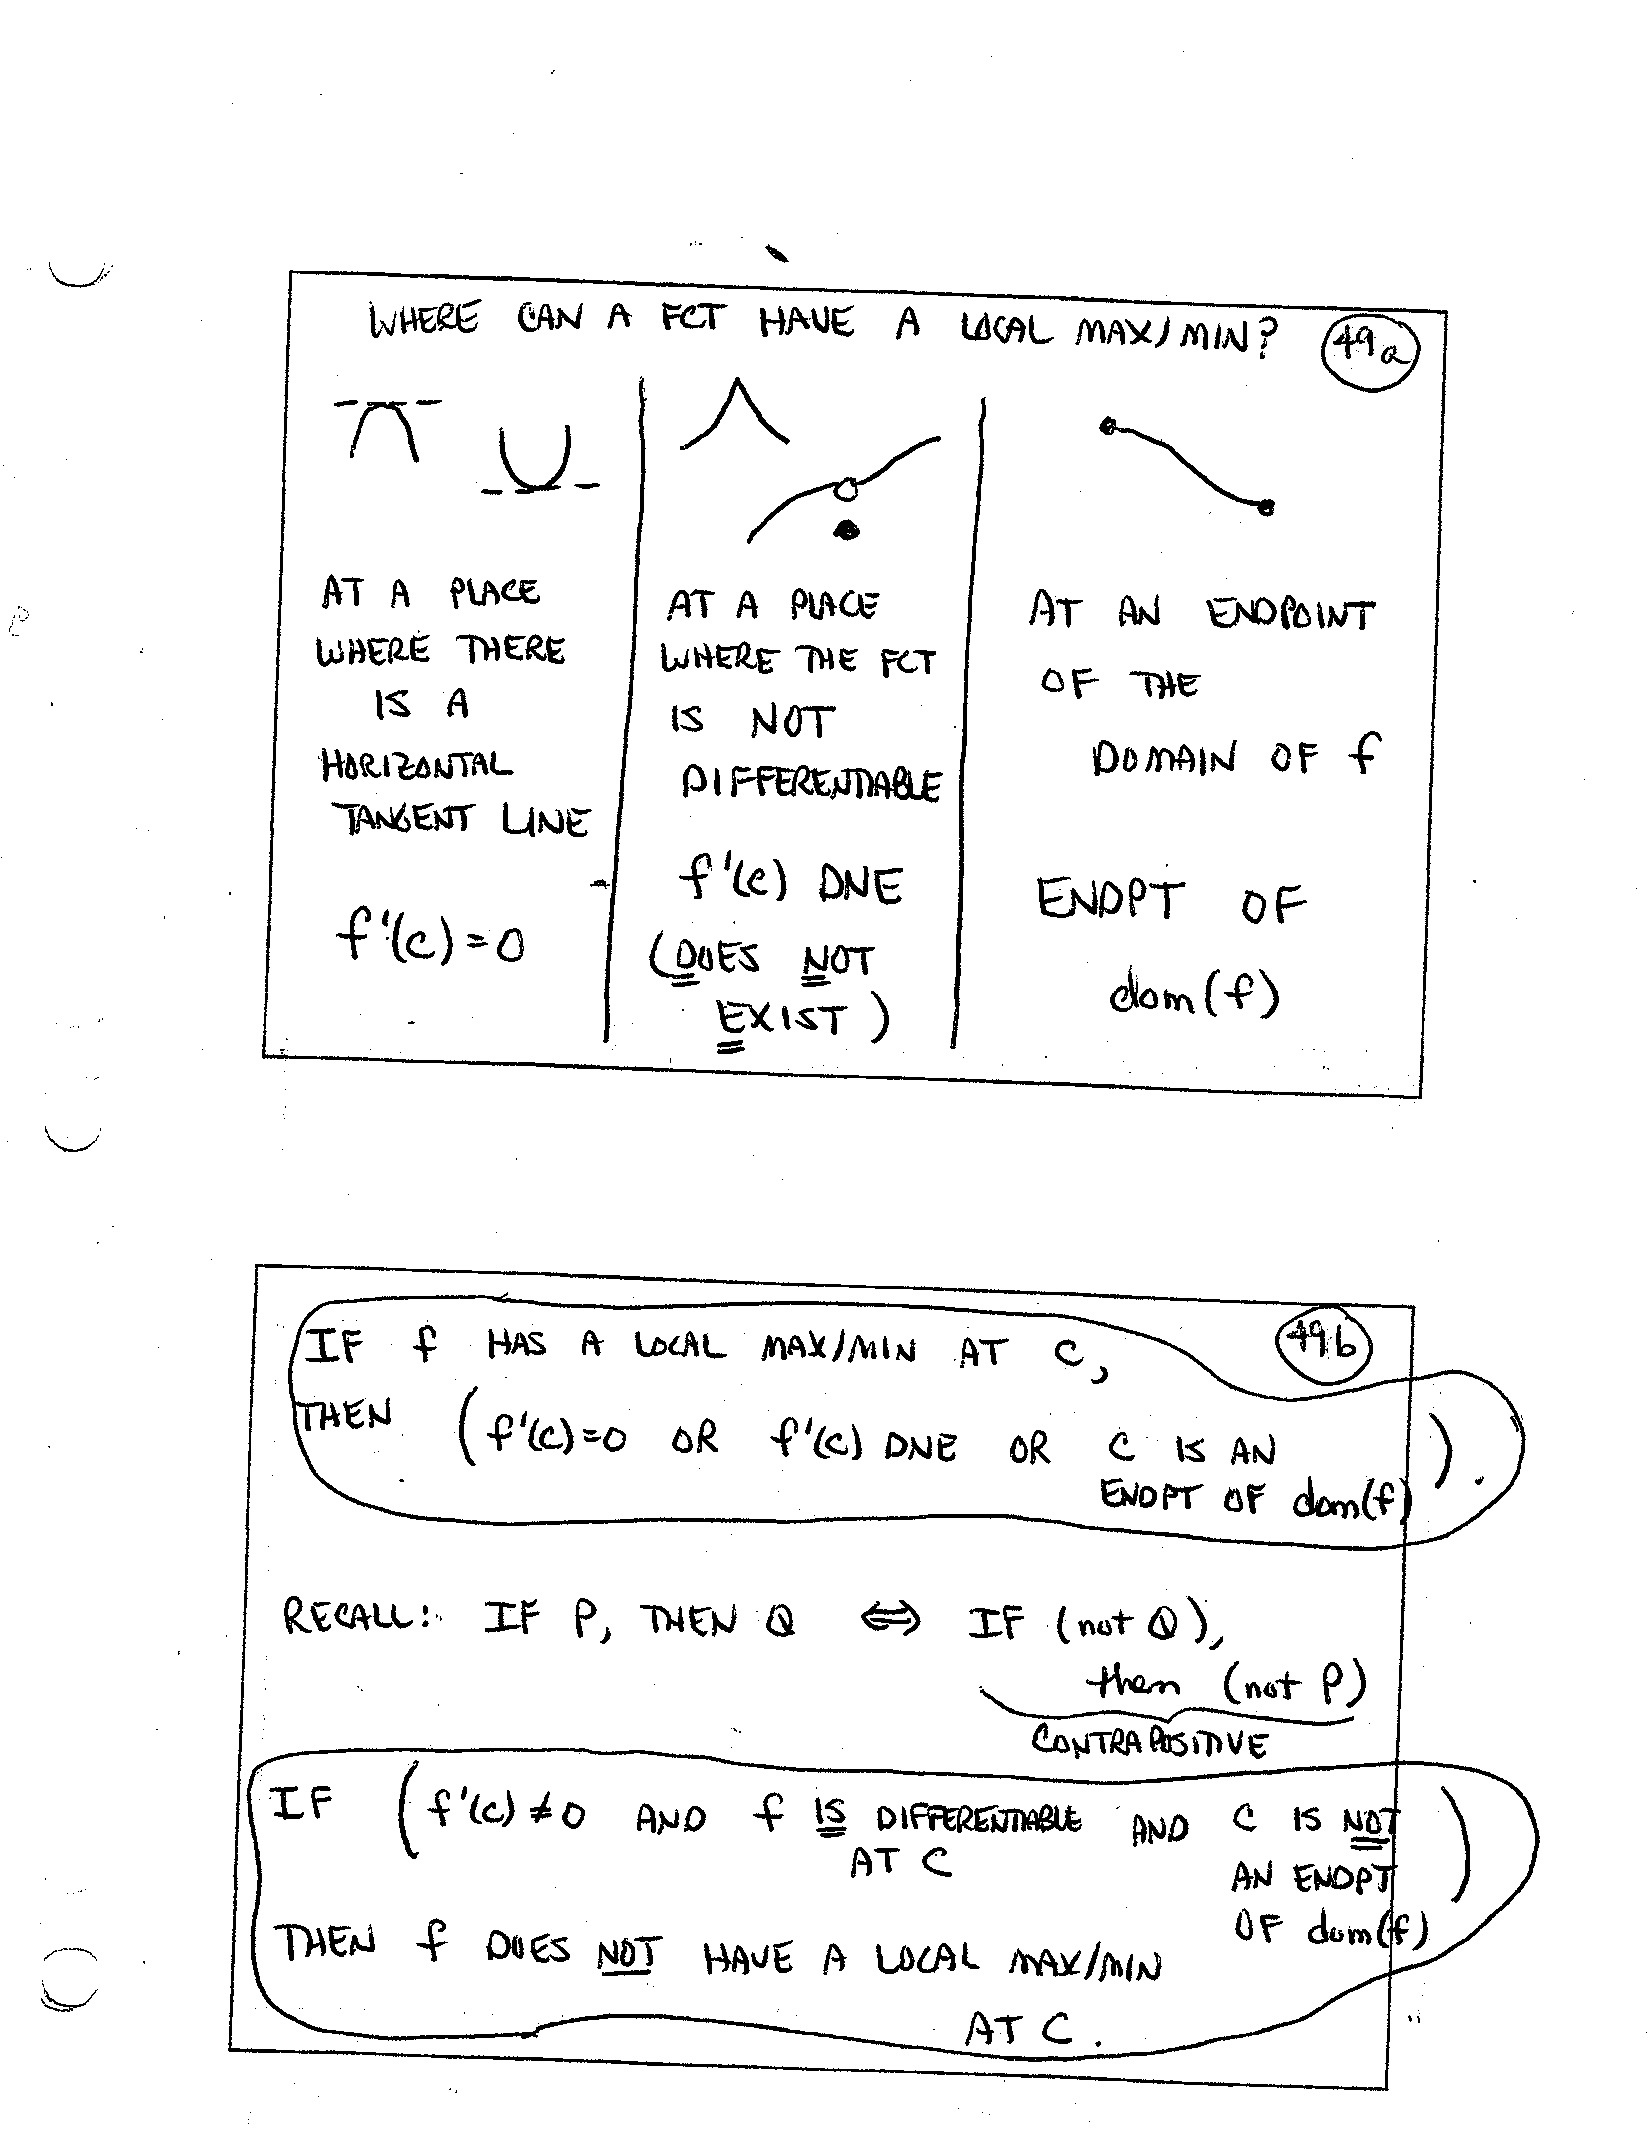 WHERE CAN A FCT HAVE A LOCAL MAX/MIN?
49a
AT A PLACE
WHERE THERE
IS A
HORIZONTAL
TANGENT LINE
f'(c)=0
AT A PLACE
WHERE THE FCT
IS NOT
DIFFERENTIABLE
f'(c) DNE
(DOES NOT
EXIST)
AT AN ENDPOINT
OF THE
DOMAIN OF f
ENDPT OF
dom(f)
49b
IF f HAS A LOCAL MAX/MIN AT C,
THEN (f'(c)=0 OR f'(c) DNE OR C IS AN
ENDPT OF dom(f)).
RECALL: IF P, THEN Q ⇔ IF (not Q),
then (not P)
CONTRAPOSITIVE
IF (f'(c)≠0 AND f IS DIFFERENTIABLE AND C IS NOT
AT C
AN ENDPT
OF dom(f))
THEN f DOES NOT HAVE A LOCAL MAX/MIN
AT C.